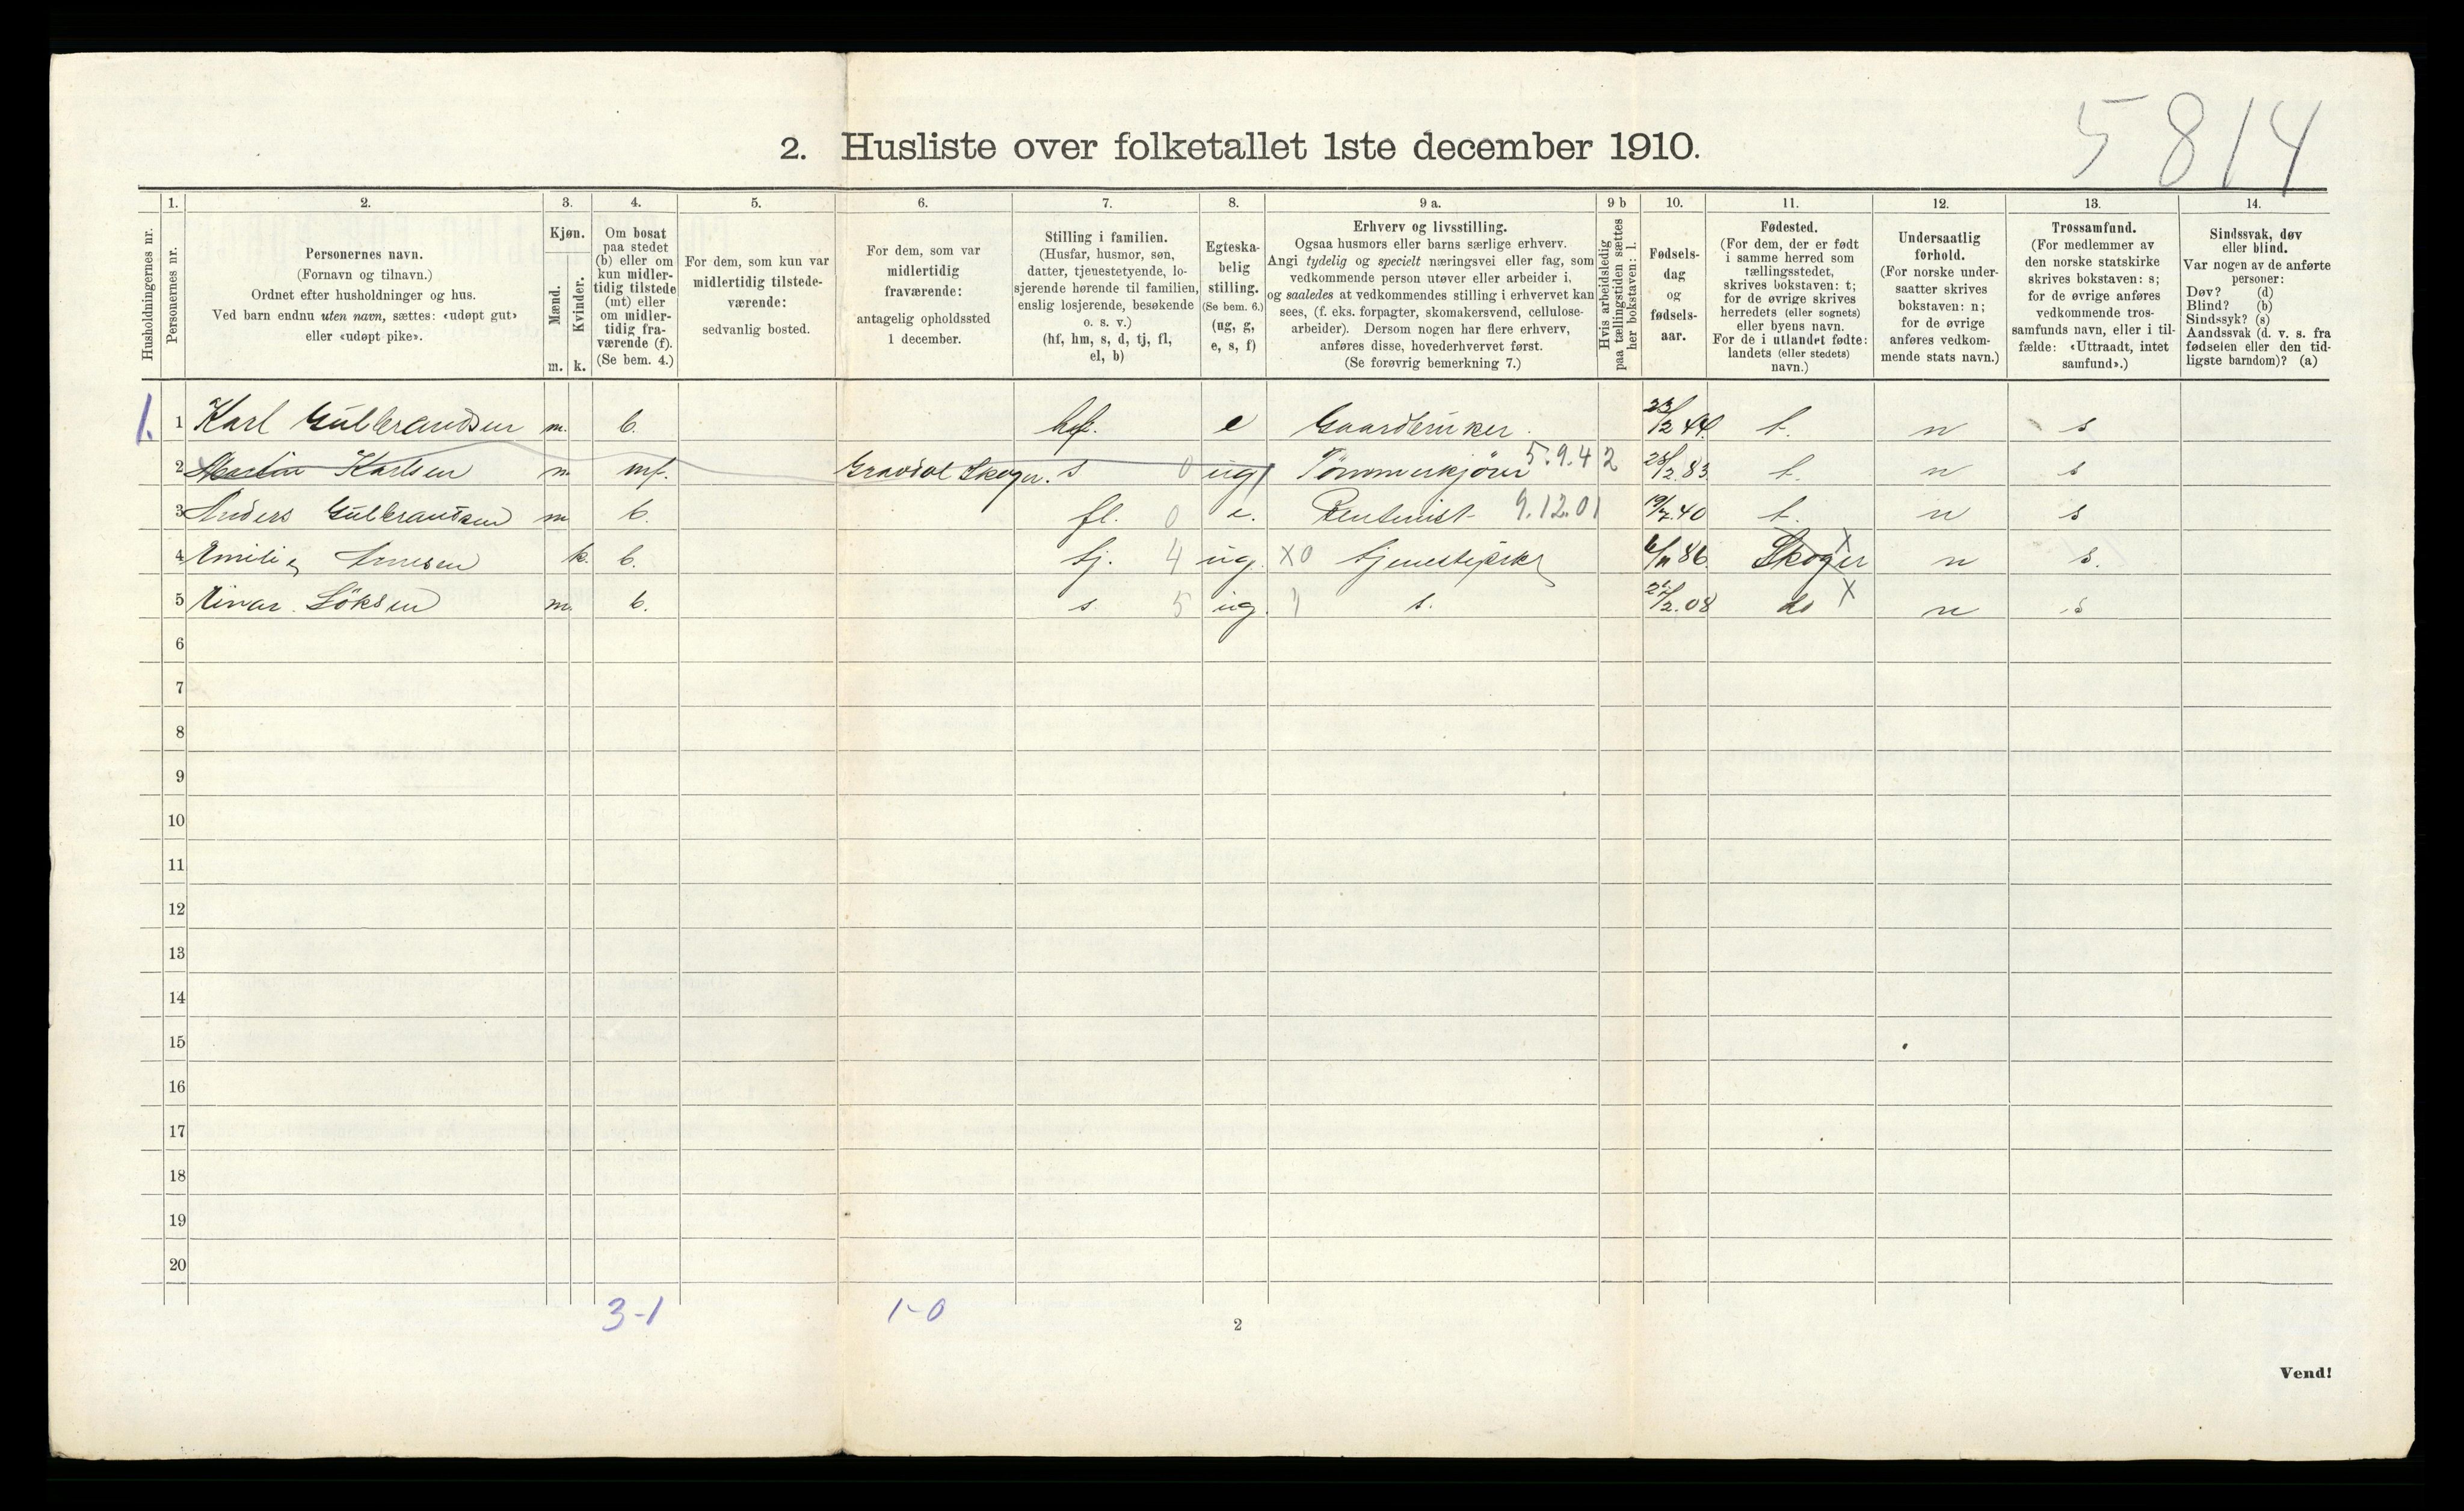 5814
2. Husliste over folketallet 1ste december 1910.
1. 2. 3. 4. 5. 6. 7. 8. 9 a. 9 b 10. 11. 12. 13. 14.
Husholdningernes nr.
Personernes nr.
Personernes navn.
(Fornavn og tilnavn.)
Ordnet efter husholdninger og hus.
Ved barn endnu uten navn, sættes: «udøpt gut»
eller «udøpt pike».
Kjøn.
Mænd.
Kvinder.
m. k.
Om bosat
paa stedet
(b) eller om
kun midler-
tidig tilstede
(mt) eller
om midler-
tidig fra-
værende (f).
(Se bem. 4.)
For dem, som kun var
midlertidig tilstede-
værende:
sedvanlig bosted.
For dem, som var
midlertidig
fraværende:
antagelig opholdssted
1 december.
Stilling i familien.
(Husfar, husmor, søn,
datter, tjenestetyende, lo-
sjerende hørende til familien,
enslig losjerende, besøkende
o. s. v.)
(hf, hm, s, d, tj, fl,
el, b)
Egteska-
belig
stilling.
(Se bem. 6.)
(ug, g,
e, s, f)
Erhverv og livsstilling.
Ogsaa husmors eller barns særlige erhverv.
Angi tydelig og specielt næringsvei eller fag, som
vedkommende person utøver eller arbeider i,
og saaledes at vedkommendes stilling i erhvervet kan
sees, (f. eks. forpagter, skomakersvend, cellulose-
arbeider). Dersom nogen har flere erhverv,
anføres disse, hovederhvervet først.
(Se forøvrig bemerkning 7.)
Hvis arbeidsledig
paa tællingstiden sættes
her bokstaven: l.
Fødsels-
dag
og
fødsels-
aar.
Fødested.
(For dem, der er født
i samme herred som
tællingsstedet,
skrives bokstaven: t;
for de øvrige skrives
herredets (eller sognets)
eller byens navn.
For de i utlandet fødte:
landets (eller stedets)
navn.)
Undersaatlig
forhold.
(For norske under-
saatter skrives
bokstaven: n;
for de øvrige
anføres vedkom-
mende stats navn.)
Trossamfund.
(For medlemmer av
den norske statskirke
skrives bokstaven: s;
for de øvrige anføres
vedkommende tros-
samfunds navn, eller i til-
fælde: «Uttraadt, intet
samfund».)
Sindssvak, døv
eller blind.
Var nogen av de anførte
personer:
Døv? (d)
Blind? (b)
Sindssyk? (s)
Aandssvak (d. v. s. fra
fødselen eller den tid-
ligste barndom)? (a)
1. 1 Karl Gulbrandsen m. b. hf. e Gaardbruker. 23/2 44. t. n s
2 Martin Karlsen m mf. Gravdal Skoger. s 0 ug Tømmerkjører 5.9.42 28/2.83 t. n s
3 Anders Gulbrandsen m b. fl. 0 e. Rentenist 9.12.01 19/7.40 t. n s
4 Emilie Arnesen k. b. tj. 4 ug. X0 tjenestepike 6/11 86. Skoger X n s.
5 Einar m. b. s 5 ug. 1 s. /2.08 do X n s
6
7
8
9
10
11
12
13
14
15
16
17
18
19
20
3-1 1-0
2
Vend!